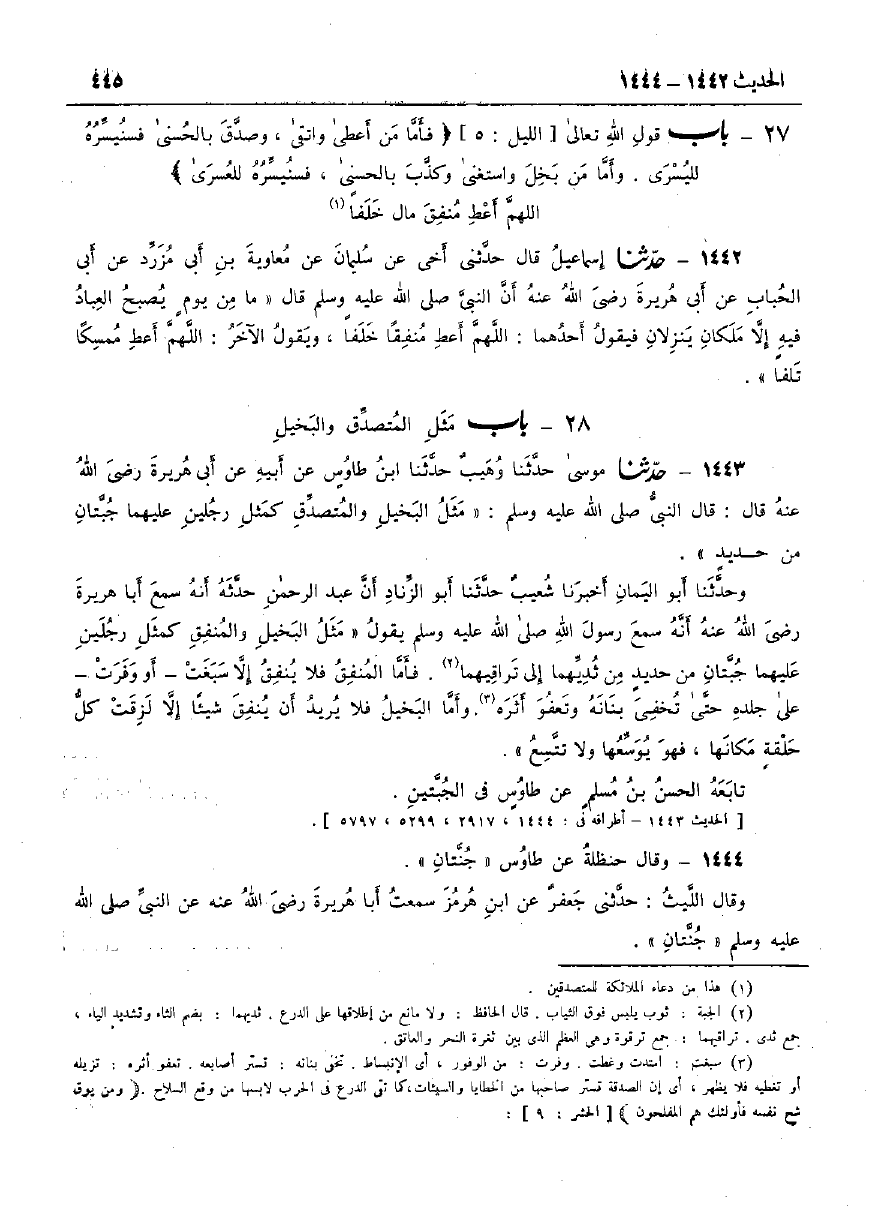 الحديث ١٤٤٢ – ١٤٤٤ ٤٤٥
٢٧ – باب قولِ اللهِ تعالىٰ [ الليل : ٥ ] ﴿ فأَمَّا مَن أَعطىٰ واتقىٰ ، وصدَّقَ بالحُسنىٰ فسنُيسِّرُهُ
لليُسْرَى . وأمَّا مَن بَخِلَ واستغنىٰ وكذَّبَ بالحسنىٰ ، فسنُيسِّرُهُ للعُسرَىٰ ﴾
اللهمَّ أَعْطِ مُنفِقَ مال خَلَفاً (١)
١٤٤٢ – حدّثنا إسماعيلُ قال حدّثنى أخى عن سُليمانَ عن مُعاويةَ بنِ أبى مُزَرِّد عن أبى
الحُبابِ عن أبى هُريرةَ رضىَ اللهُ عنهُ أنَّ النبىَّ صلى الله عليه وسلم قال « ما مِن يومٍ يُصبحُ العِبادُ
فيهِ إلَّا مَلَكانِ يَنزِلانِ فيقولُ أحدُهما : اللَّهمَّ أَعطِ مُنفِقًا خَلَفاً ، ويَقولُ الآخَرُ : اللَّهمَّ أَعطِ مُمسِكًا
تَلَفا » .
٢٨ – باب مَثَلِ المُتصدِّق والبَخيلِ
١٤٤٣ – حدّثنا موسىٰ حدَّثَنا وُهَيبٌ حدَّثَنا ابنُ طاوُس عن أبيهِ عن أبى هُريرةَ رضىَ اللهُ
عنهُ قال : قال النبىُّ صلى الله عليه وسلم : « مَثَلُ البَخيلِ والمُتصدِّقِ كمَثلِ رجُلينِ عليهما جُبَّتانِ
من حـديدٍ » .
وحدَّثَنا أبو اليَمانِ أخبرَنا شُعيبٌ حدَّثَنا أبو الزِّنادِ أنَّ عبد الرحمٰنِ حدَّثَهُ أنهُ سمعَ أبا هريرةَ
رضىَ اللهُ عنهُ أنَّهُ سمعَ رسولَ اللهِ صلى الله عليه وسلم يقولُ « مَثَلُ البَخيلِ والمُنفِقِ كمثَلِ رجُلَينِ
عَليهما جُبَّتانِ من حديدٍ مِن ثُدِيِّهما إلى تَراقِيهما(٢) . فأمَّا المُنفِقُ فلا يُنفِقُ إلَّا سَبَغَتْ – أو وَفَرَتْ –
علىٰ جلدهِ حتَّىٰ تُخفِىَ بنَانَهُ وتَعفُوَ أَثَرَه(٣). وأمَّا البَخيلُ فلا يُريدُ أن يُنفِقَ شيئًا إلَّا لَزِقَتْ كلُّ
حَلْقةٍ مَكانَها ، فهوَ يُوَسِّعُها ولا تتَّسِعُ » .
تابَعَهُ الحسنُ بنُ مُسلمٍ عن طاوُسٍ فى الجُبَّتينِ .
[ الحديث ١٤٤٣ – أطرافه فى : ١٤٤٤ ، ٢٩١٧ ، ٥٢٩٩ ، ٥٧٩٧ ] .
١٤٤٤ – وقال حنظلةُ عن طاوُس « جُنَّتانِ » .
وقال اللَّيثُ : حدَّثنى جَعفرٌ عن ابنِ هُرمُزَ سمعتُ أبا هُريرةَ رضىَ اللهُ عنه عن النبىِّ صلى الله
عليه وسلم « جُنَّتانِ » .
(١) هذا من دعاء الملائكة للمتصدقين .
(٢) الجبة : ثوب يلبس فوق الثياب . قال الحافظ : ولا مانع من إطلاقها على الدرع . ثديهما : بضم الثاء وتشديد الياء ،
جمع ثدى . تراقيهما : جمع ترقوة وهى العظم الذى بين ثغرة النحر والعاتق .
(٣) سبغت : امتدت وغطت . وفرت : من الوفور ، أى الإنبساط . تخفى بنانه : تستر أصابعه . تعفو أثره : تزيله
أو تغطيه فلا يظهر ، أى إن الصدقة تستر صاحبها من الخطايا والسيئات،كما تقى الدرع فى الحرب لابسها من وقع السلاح .﴿ ومن يوق
شح نفسه فأولئك هم المفلحون ﴾ [ الحشر : ٩ ] :